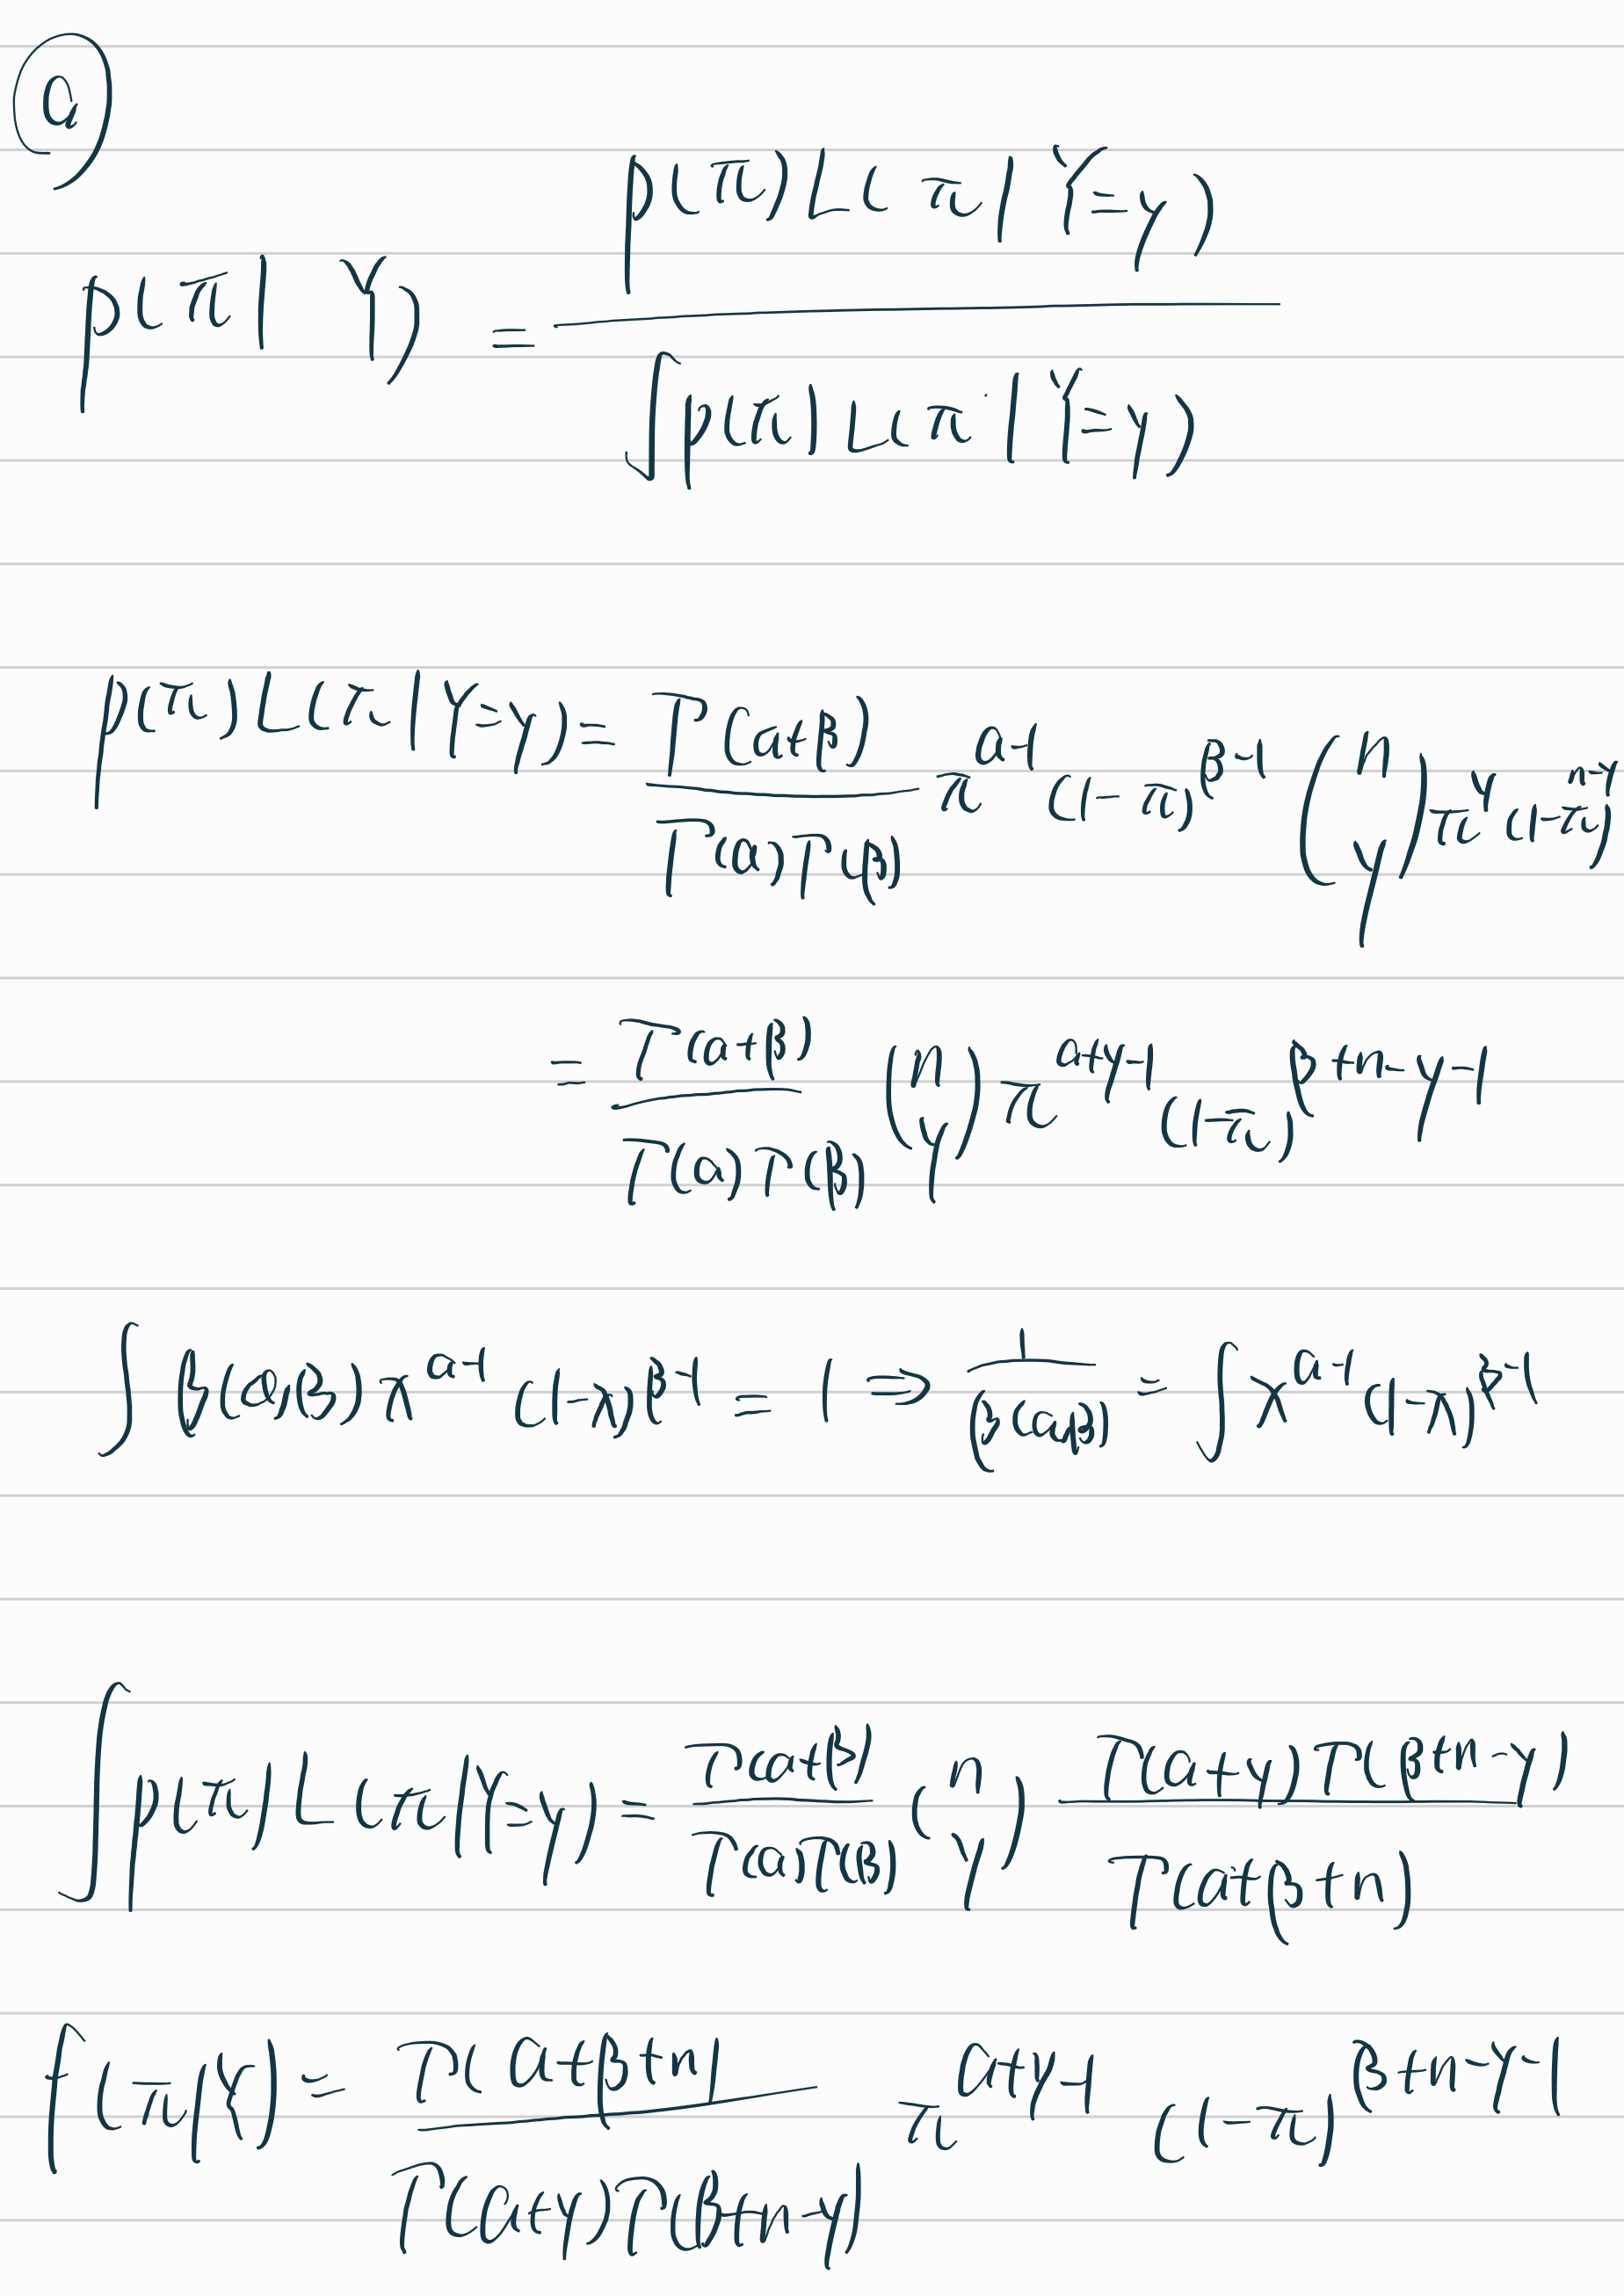 ⓐ
p(π|Y) = p(π)L(π|Y=y) / ∫p(π)L(π|Y=y)
p(π)L(π|Y=y) = Γ(a+β) / Γ(a)Γ(β) π^(a-1) (1-π)^(β-1) (n y) π^y (1-π)^(n-y)
= Γ(a+β) / Γ(a)Γ(β) (n y) π^(a+y-1) (1-π)^(β+n-y-1)
∫ β(a,β) x^(a-1) (1-x)^(β-1) = 1 => 1 / β(a,β) = ∫ x^(a-1) (1-x)^(β-1)
∫ p(π)L(π|Y=y) = Γ(a+β) / Γ(a)Γ(β) (n y) Γ(a+y)Γ(β+n-y) / Γ(a+β+n)
f(π|Y) = Γ(a+β+n) / Γ(a+y)Γ(β+n-y) π^(a+y-1) (1-π)^(β+n-y-1)